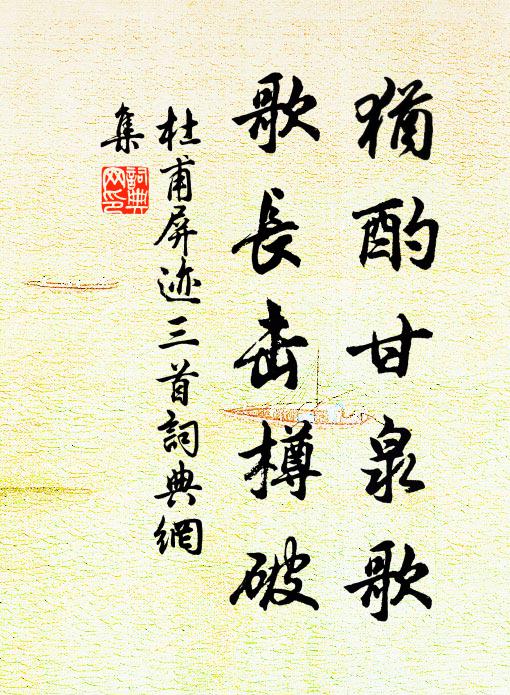 猶酌甘泉歌
歌長击樽破
杜甫屏迹三首詞典網
集
詞典
网印